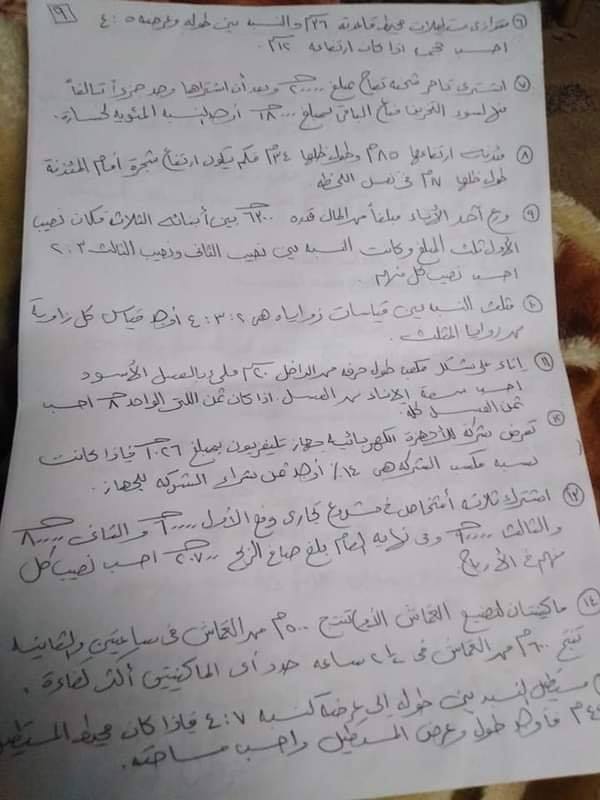 ٩
٦) متوازى مستطيلات محيط قاعدته ٣٦ م والنسبه بين طوله وعرضه ٥ : ٤
احسب حجمه اذا كان ارتفاعه ١٢ م.
٧) اشترى تاجر شحنة تفاح بمبلغ ٢٠٠٠٠ جـ وبعد أن اشتراها وجد جزءاً تالفاً
منها لسوء التخزين فباع الباقى بمبلغ ١٨٠٠٠ جـ أوجد النسبه المئويه لخسارته.
٨) مئذنه ارتفاعها ٨٥ م وطول ظلها ٣٤ م فكم يكون ارتفاع شجرة أمام المئذنة
طول ظلها ٧ م فى نفس اللحظه
٩) وزع أحد الأغنياء مبلغاً من المال قدره ٦٣٠٠ جـ بين أبنائه الثلاث فكان نصيب
الأول ثلث المبلغ وكانت النسبه بين نصيب الثانى ونصيب الثالث ٣ : ٢
احسب نصيب كل منهم.
١٠) مثلث النسبه بين قياسات زواياه هى ٢ : ٣ : ٤ أوجد قياس كل زاوية
من زوايا المثلث.
١١) إناء على شكل مكعب طول حرفه من الداخل ٢٠ سم ملئ بالعسل الأسود
احسب سعة الإناء من العسل. اذا كان ثمن اللتر الواحد ٨ جـ احسب
ثمن العسل كله.
١٢) تعرض شركه للأجهزة الكهربائيه جهاز تليفزيون بمبلغ ١٠٢٦ جـ فإذا كانت
نسبه مكسب الشركه هى ١٤٪ أوجد ثمن شراء الشركه للجهاز.
١٣) اشترك ثلاثه أشخاص فى مشروع تجارى دفع الأول جـ والثانى جـ
والثالث جـ وفى نهايه العام بلغ صافى الربح ٢٠٧٠٠ جـ احسب نصيب كل
منهم فى الأرباح
١٤) ماكينتان لتصنيع القماش الأولى تنتج ٥٠٠ م من القماش فى ساعتين والثانيه
تنتج ٦٠٠ م من القماش فى ساعه حدد أى الماكينتين أكثر كفاءة.
مستطيل النسبه بين طوله إلى عرضه كنسبه ٧ : ٤ فإذا كان محيط المستطيل
فأوجد طول وعرض المستطيل واحسب مساحته.